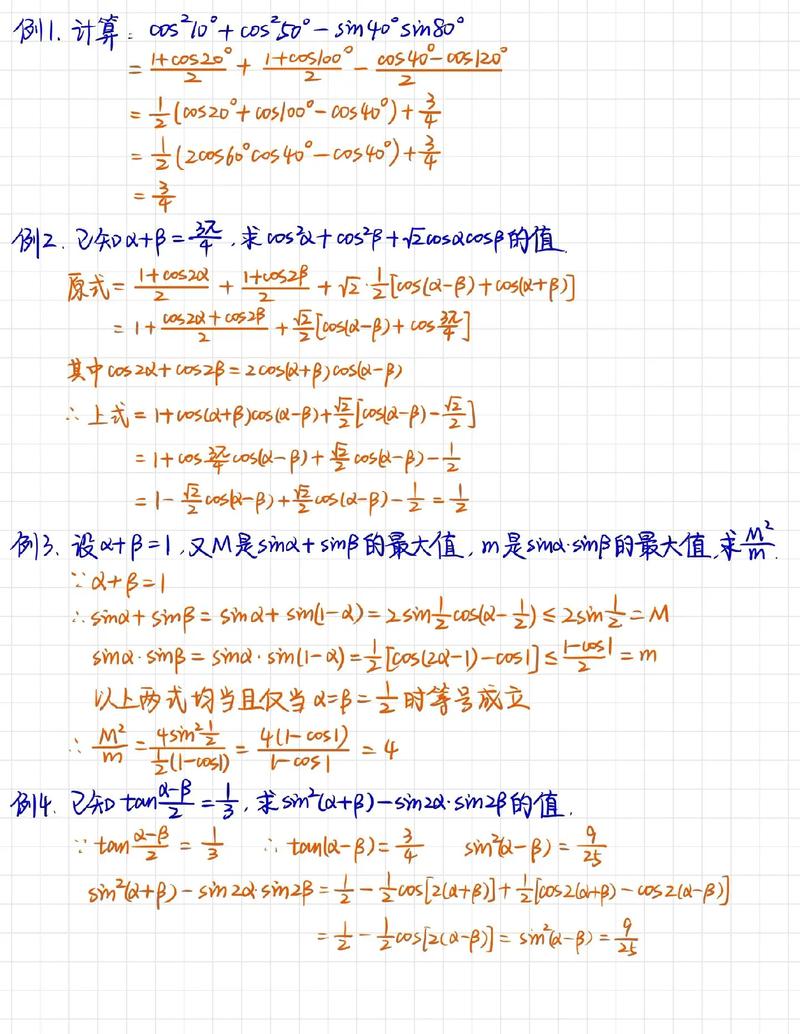 例1. 计算: cos²10°+cos²50°-sin40°sin80°
= (1+cos20°)/2 + (1+cos100°)/2 - (cos40°-cos120°)/2
= 1/2(cos20°+cos100°-cos40°)+3/4
= 1/2(2cos60°cos40°-cos40°)+3/4
= 3/4
例2. 已知α+β=3π/4, 求cos²α+cos²β+√2cosαcosβ的值.
原式= (1+cos2α)/2 + (1+cos2β)/2 + √2·1/2[cos(α-β)+cos(α+β)]
= 1+(cos2α+cos2β)/2 + √2/2[cos(α-β)+cos3π/4]
其中cos2α+cos2β=2cos(α+β)cos(α-β)
∴上式=1+cos(α+β)cos(α-β)+√2/2[cos(α-β)-√2/2]
= 1+cos3π/4cos(α-β)+√2/2cos(α-β)-1/2
= 1-√2/2cos(α-β)+√2/2cos(α-β)-1/2=1/2
例3. 设α+β=1,又M是sinα+sinβ的最大值, m是sinα·sinβ的最大值,求M²/m.
∵α+β=1
∴sinα+sinβ=sinα+sin(1-α)=2sin1/2cos(α-1/2)≤2sin1/2=M
sinα·sinβ=sinα·sin(1-α)=1/2[cos(2α-1)-cos1]≤(1-cos1)/2=m
以上两式均当且仅当α=β=1/2时等号成立
∴M²/m=4sin²1/2/(1/2(1-cos1))=4(1-cos1)/(1-cos1)=4
例4. 已知tan(α-β)/2=1/3, 求sin²(α+β)-sin2α·sin2β的值.
∵tan(α-β)/2=1/3 ∴tan(α-β)=3/4 sin²(α-β)=9/25
sin²(α+β)-sin2α·sin2β=1/2-1/2cos[2(α+β)]+1/2[cos2(α+β)-cos2(α-β)]
=1/2-1/2cos[2(α-β)]=sin²(α-β)=9/25